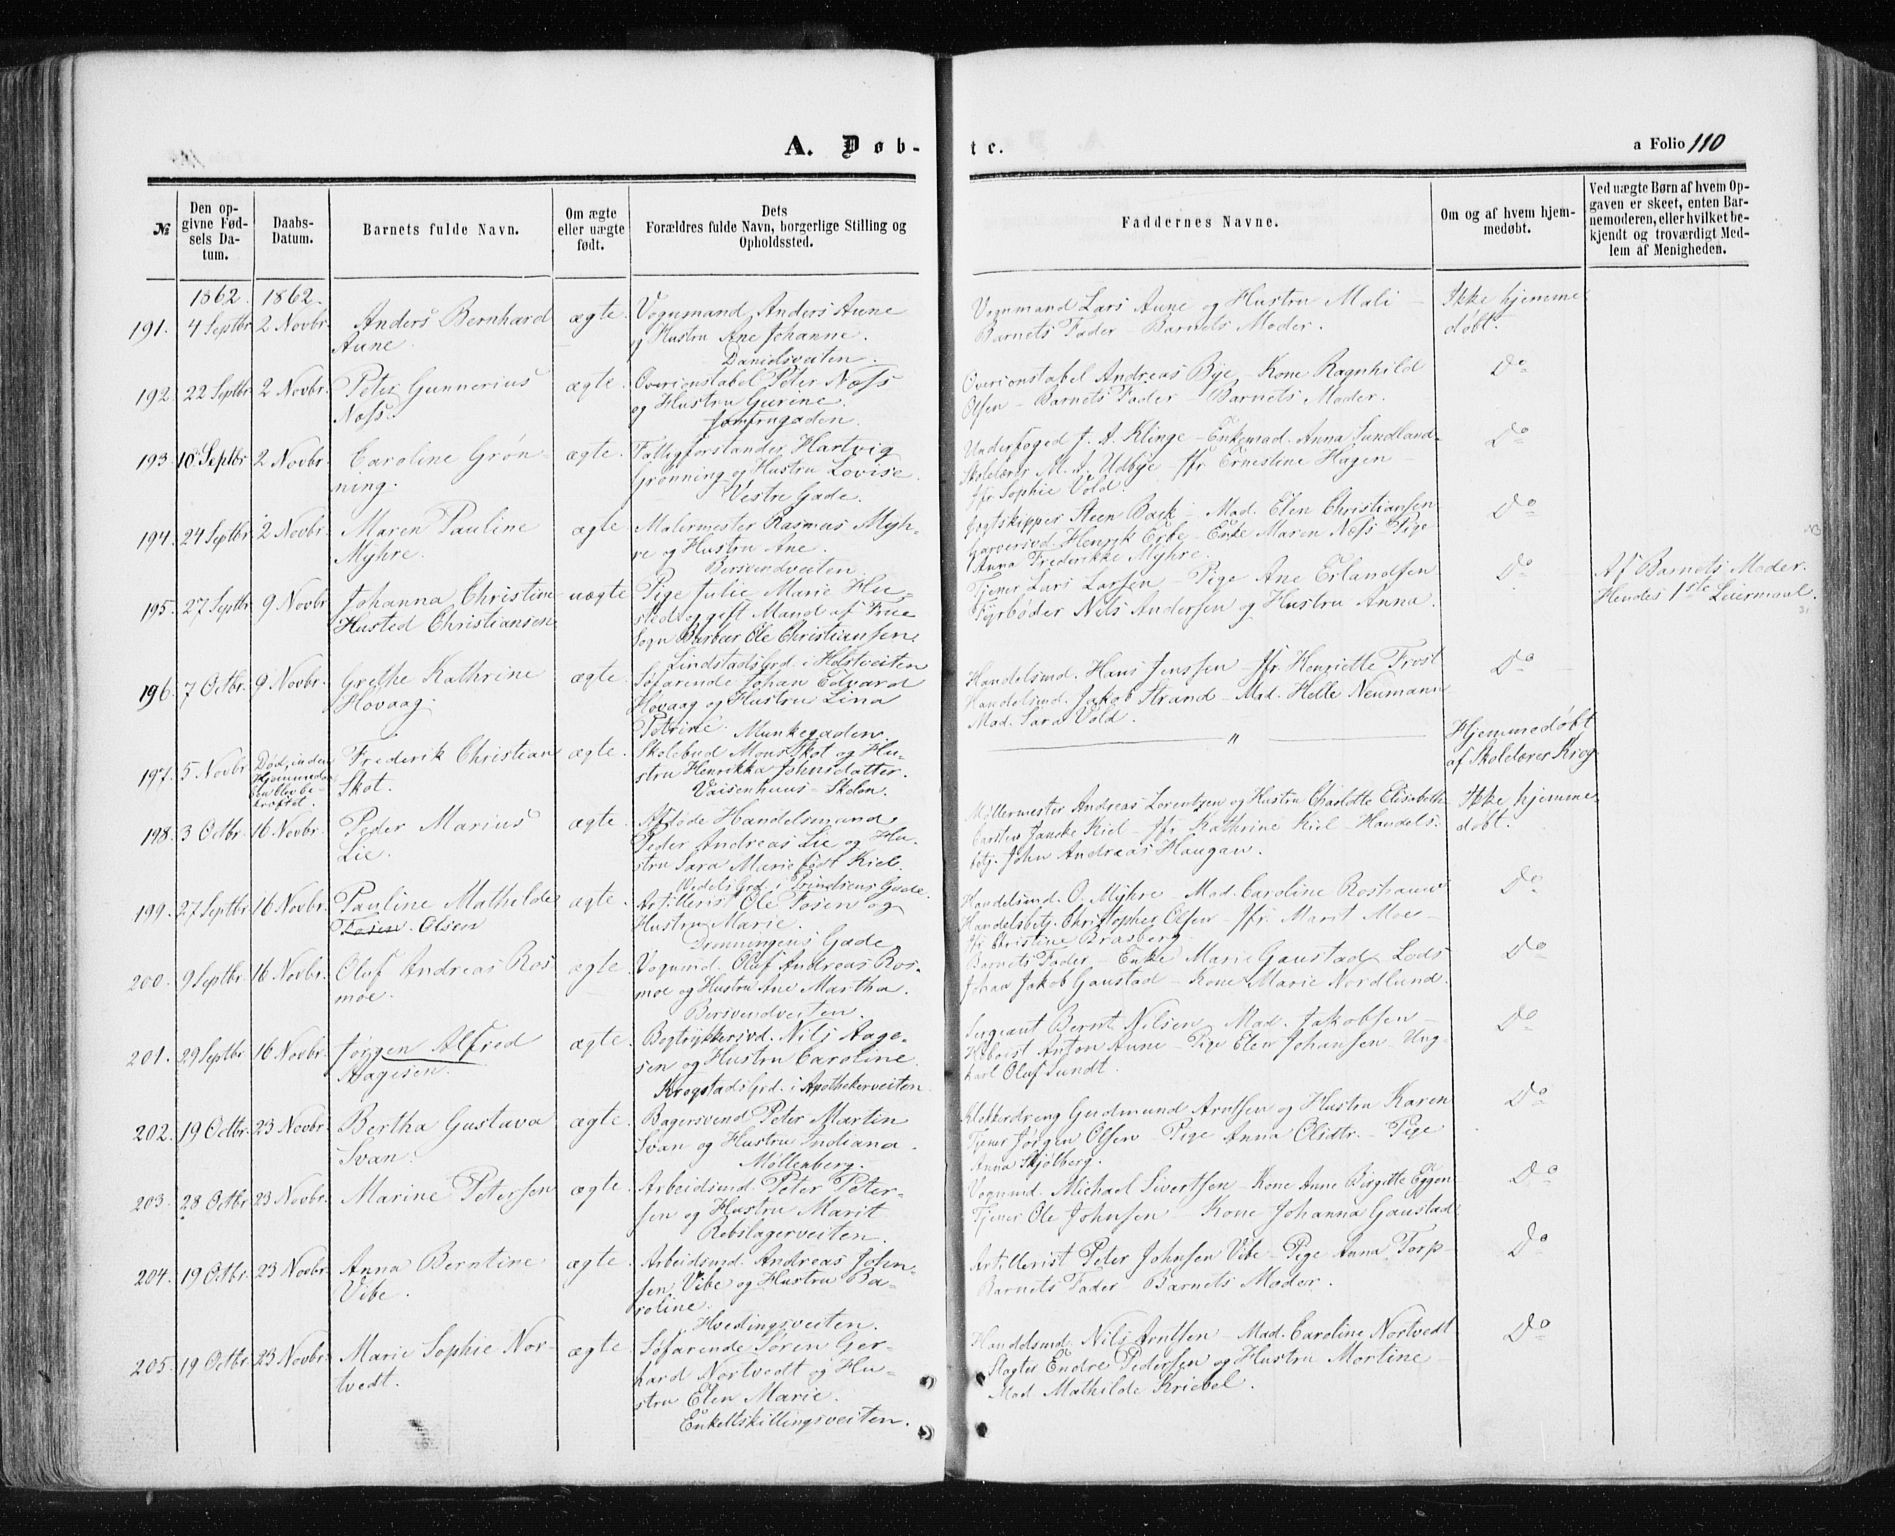 A. Døb-
te.
a Folio 110
№
Den op-
givne Fød-
sels Da-
tum.
Daabs-
Datum.
Barnets fulde Navn.
Om ægte
eller uægte
født.
Dets
Forældres fulde Navn, borgerlige Stilling og
Opholdssted.
Faddernes Navne.
Om og af hvem hjem-
medøbt.
Ved uægte Børn af hvem Op-
gaven er skeet, enten Bar-
nemoderen, eller hvilket be-
kjendt og troværdigt Med-
lem af Menigheden.
1862. 1862.
191. 4 Septbr 2 Novbr. Anders Bernhard
Aune.
ægte.
Vognmand Anders Aune
og Hustru Ane Johanne.
Danielsveiten.
Vognmand Lars Aune og Hustru Mali –
Barnets Fader – Barnets Moder.
Ikke hjemme
døbt.
192. 22 Septbr 2 Novbr. Peter Gunnerius
Næss.
ægte.
Overconstabel Peter Næss
og Hustru Gurine.
Jomfrugaden.
Overconstabel Andreas Bye – Kone Ragnhild
Olsen – Barnets Fader – Barnets Moder.
Do
193. 10 Septbr 2 Novbr. Caroline Grøn-
ning.
ægte.
Fattigforstander Hartvig
Grønning og Hustru Lovise.
Vestre Gade.
Underfoged J. A. Klinge – Enkemad. Anna Sundland –
Skolelærer M. A. Udbye – Jfr Ernestine Hagen –
Jfr Sophie Vold.
Do
194. 24 Septbr 2 Novbr. Maren Pauline
Myhre.
ægte.
Malermester Rasmus Myh-
re og Hustru Ane.
Bersvendveiten.
Jagtskipper Steen Bach – Mad. Elen Christiansen
Garversvd. Henrik Erbe – Enke Maren Næss – Pige
Anna Frederikke Myhre.
Do
195. 27 Septbr 9 Novbr Johanna Christine
Husted Christiansen
uægte
Pige Julie Marie Hu-
sted og gift Mand af Frue
Sogn Barber Ole Christiansen
LindstadsGrd. i Holstveiten
Tjener Lars Larsen – Pige Ane Erlandsen
Fyrbøder Nils Andersen og Hustru Anna.
Do
Af Barnets Moder.
Hendes 1ste Leiermaal.
196. 7 Octbr. 9 Novbr. Grethe Kathrine
Hovaag.
ægte.
Søfarende Johan Edvard
Hovaag og Hustru Lina
Petrine. Munkegaden.
Handelsmd. Hans Jenssen – Jfr. Henriette Frost
Handelsmd. Jakob Strand – Mad. Helle Neumann
Mad. Sara Vold.
Do
197. 5 Novbr Død, inden
Hjemmedaa-
ben blev be-
kræftet.
Frederik Christian
Skot.
ægte.
Skolebud Mons Skot og Hu-
stru Henrikka Johnsdatter.
Vaisenhuus-Skolen.
"
Hjemmedøbt
af Skolelærer Krog
198. 3 Octbr. 16 Novbr. Peder Marius
Lie.
ægte.
Afdøde Handelsmand
Peder Andreas Lie og Hu-
stru Sara Marie født Kiel
VedelsGrd. i Prindsens Gade.
Møllermester Andreas Lorentzen og Hustru Charlotte Elisabeth
Carsten Jancke Kiel – Jfr Kathrine Kiel – Handels-
betj. John Andreas Haugan.
Ikke hjemme-
døbt.
199. 27 Septbr 16 Novbr. Pauline Mathilde
Fosen. Olsen
ægte.
Artillerist Ole Fosen og
Hustru Marie.
Dronningens Gade
Handelsmd O. Myhre – Mad. Caroline Roshauw
Handelsbetj. Christopher Olsen – Jfr. Marit Moe –
Jfr Christine Brasberg.
Do
200. 9 Septbr 16 Novbr. Oluf Andreas Ros-
moe.
ægte.
Vognmd. Oluf Andreas Ros-
moe og Hustru Ane Martha.
Bersvendveiten.
Barnets Fader – Enke Marie Gaustad Lods
Johan Jakob Gaustad – Kone Marie Nordlund.
Do
201. 29 Septbr 16 Novbr. Jørgen Alfred
Aagesen.
ægte.
Bogtrykkersvd. Nils Aage-
sen og Hustru Caroline.
KrogstadsGrd. i Apothekerveiten
Sergeant Bernt Nilsen Mad. Jakobsen –
Hoboist Anton Aune – Pige Elen Johansen – Ung-
karl Oluf Sundt.
Do
202. 19 Octbr. 23 Novbr. Bertha Gustava
Svan.
ægte.
Bagersvend Peter Martin
Svan og Hustru Indiana.
Møllenberg.
Klokkerdreng Gudmund Arntsen og Hustru Karen
Tjener Jørgen Olsen – Pige Anna Olsdtr. – Pige
Anna Skjølberg.
Do
203. 28 Octbr 23 Novbr. Marine Petersen
ægte.
Arbeidsmd. Peter Peter-
sen og Hustru Marit
Rebslagerveiten.
Vognmd. Michael Sivertsen – Kone Anne Birgitte Eggen
Tjener Ole Johnsen – Kone Johanna Gaustad
Do
204. 19 Octbr. 23 Novbr Anna Berntine
Vibe.
ægte.
Arbeidsmd. Andreas John-
sen Vibe og Hustru Ba-
roline.
Hvedingsveiten.
Artillerist Peter Johnsen Vibe – Pige Anna Torp –
Barnets Fader – Barnets Moder.
Do
205. 19 Octbr. 23 Novbr. Marie Sophie Nor-
tvedt.
ægte
Søfarende Søren Ger-
hard Nortvedt og Hu-
stru Elen Marie.
Enkeltskillingsveiten.
Handelsmd. Nils Arntsen – Mad. Caroline Nortvedt
Slagter Endre Pedersen og Hustru Mortine –
Mad Mathilde Kriebel.
Do